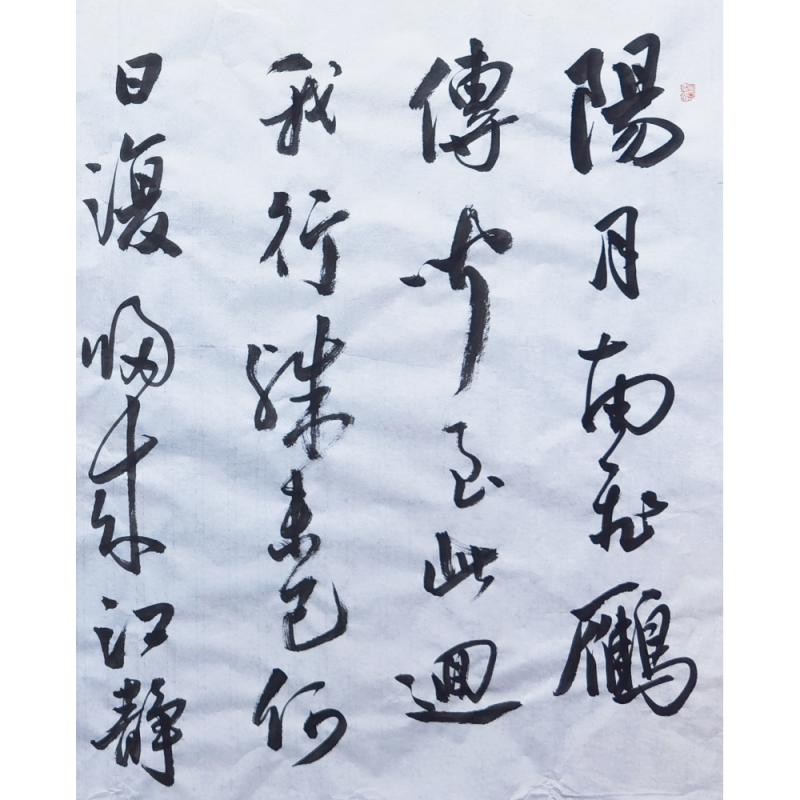 陽月南飛鴈
傳聞至此迴
我行殊未已何
日復歸來江靜